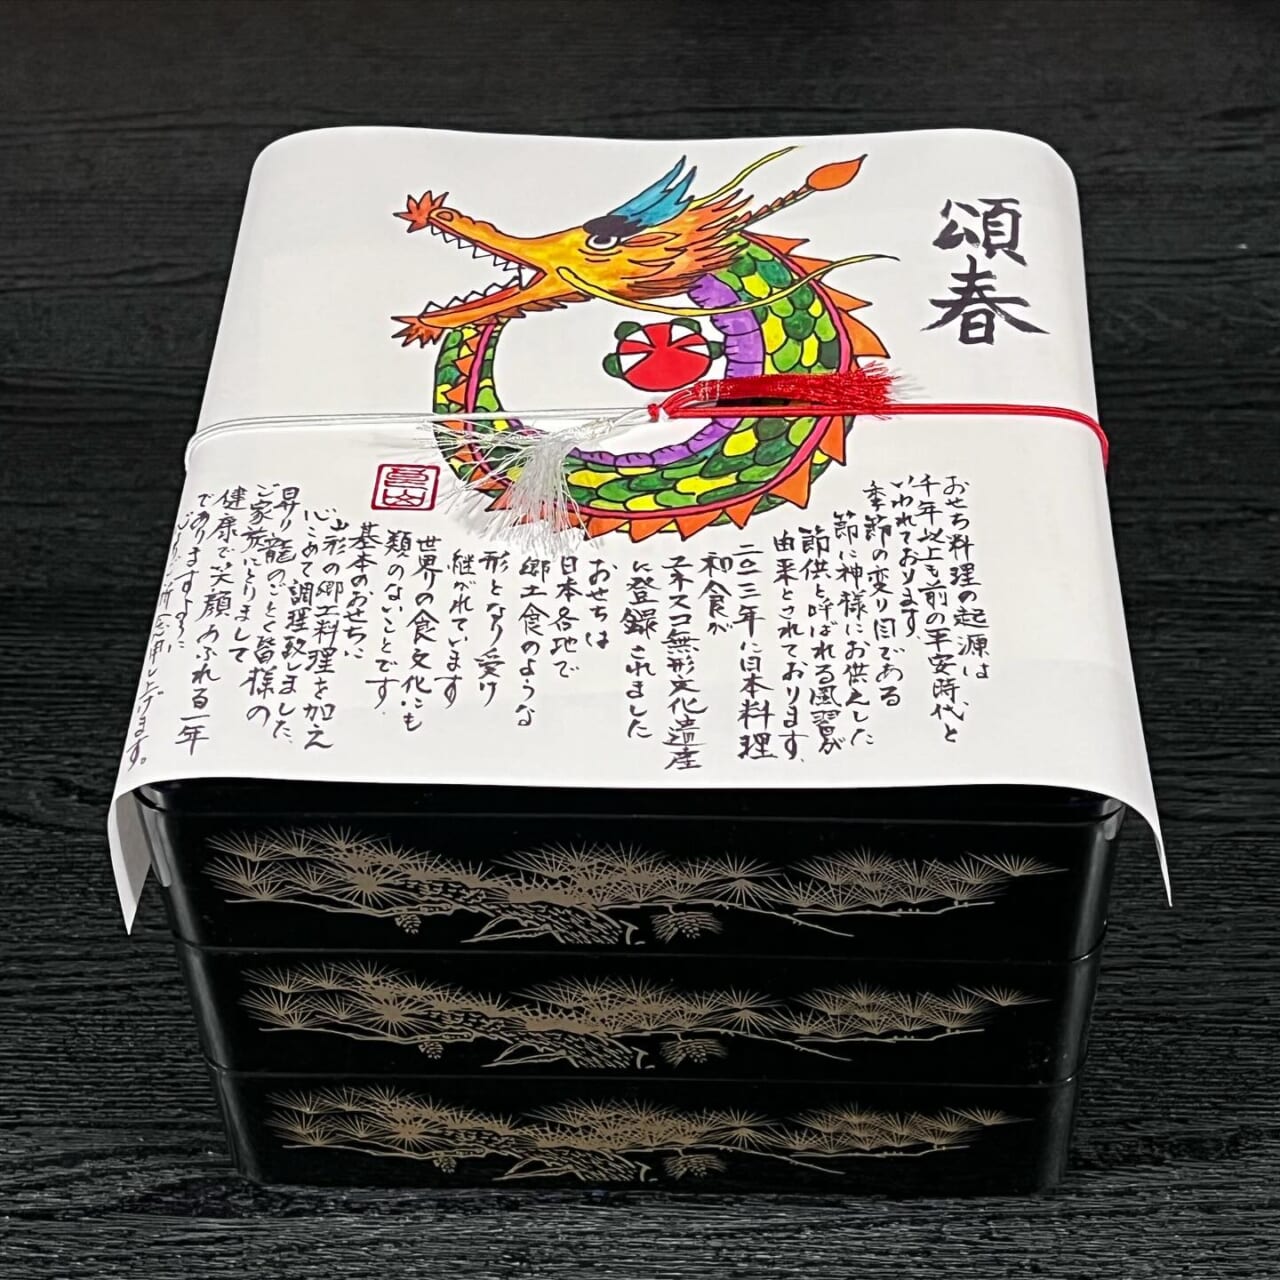 頌春
おせち料理の起源は
千年以上も前の平安時代と
いわれております
季節の変り目である
節に神様にお供えした
節供と呼ばれる風習が
由来とされております
二〇一三年に日本料理
和食が
ユネスコ無形文化遺産
に登録されました
おせちは
日本各地で
郷土食のような
形となり受け
継がれています
世界の食文化にも
類のないことです
基本のおせちに
山形の郷土料理を加え
心こめて調理致しました
昇り龍のごとく皆様の
ご家族にとりまして
健康で笑顔あふれる一年
でありますように
心よりご祈念申し上げます。